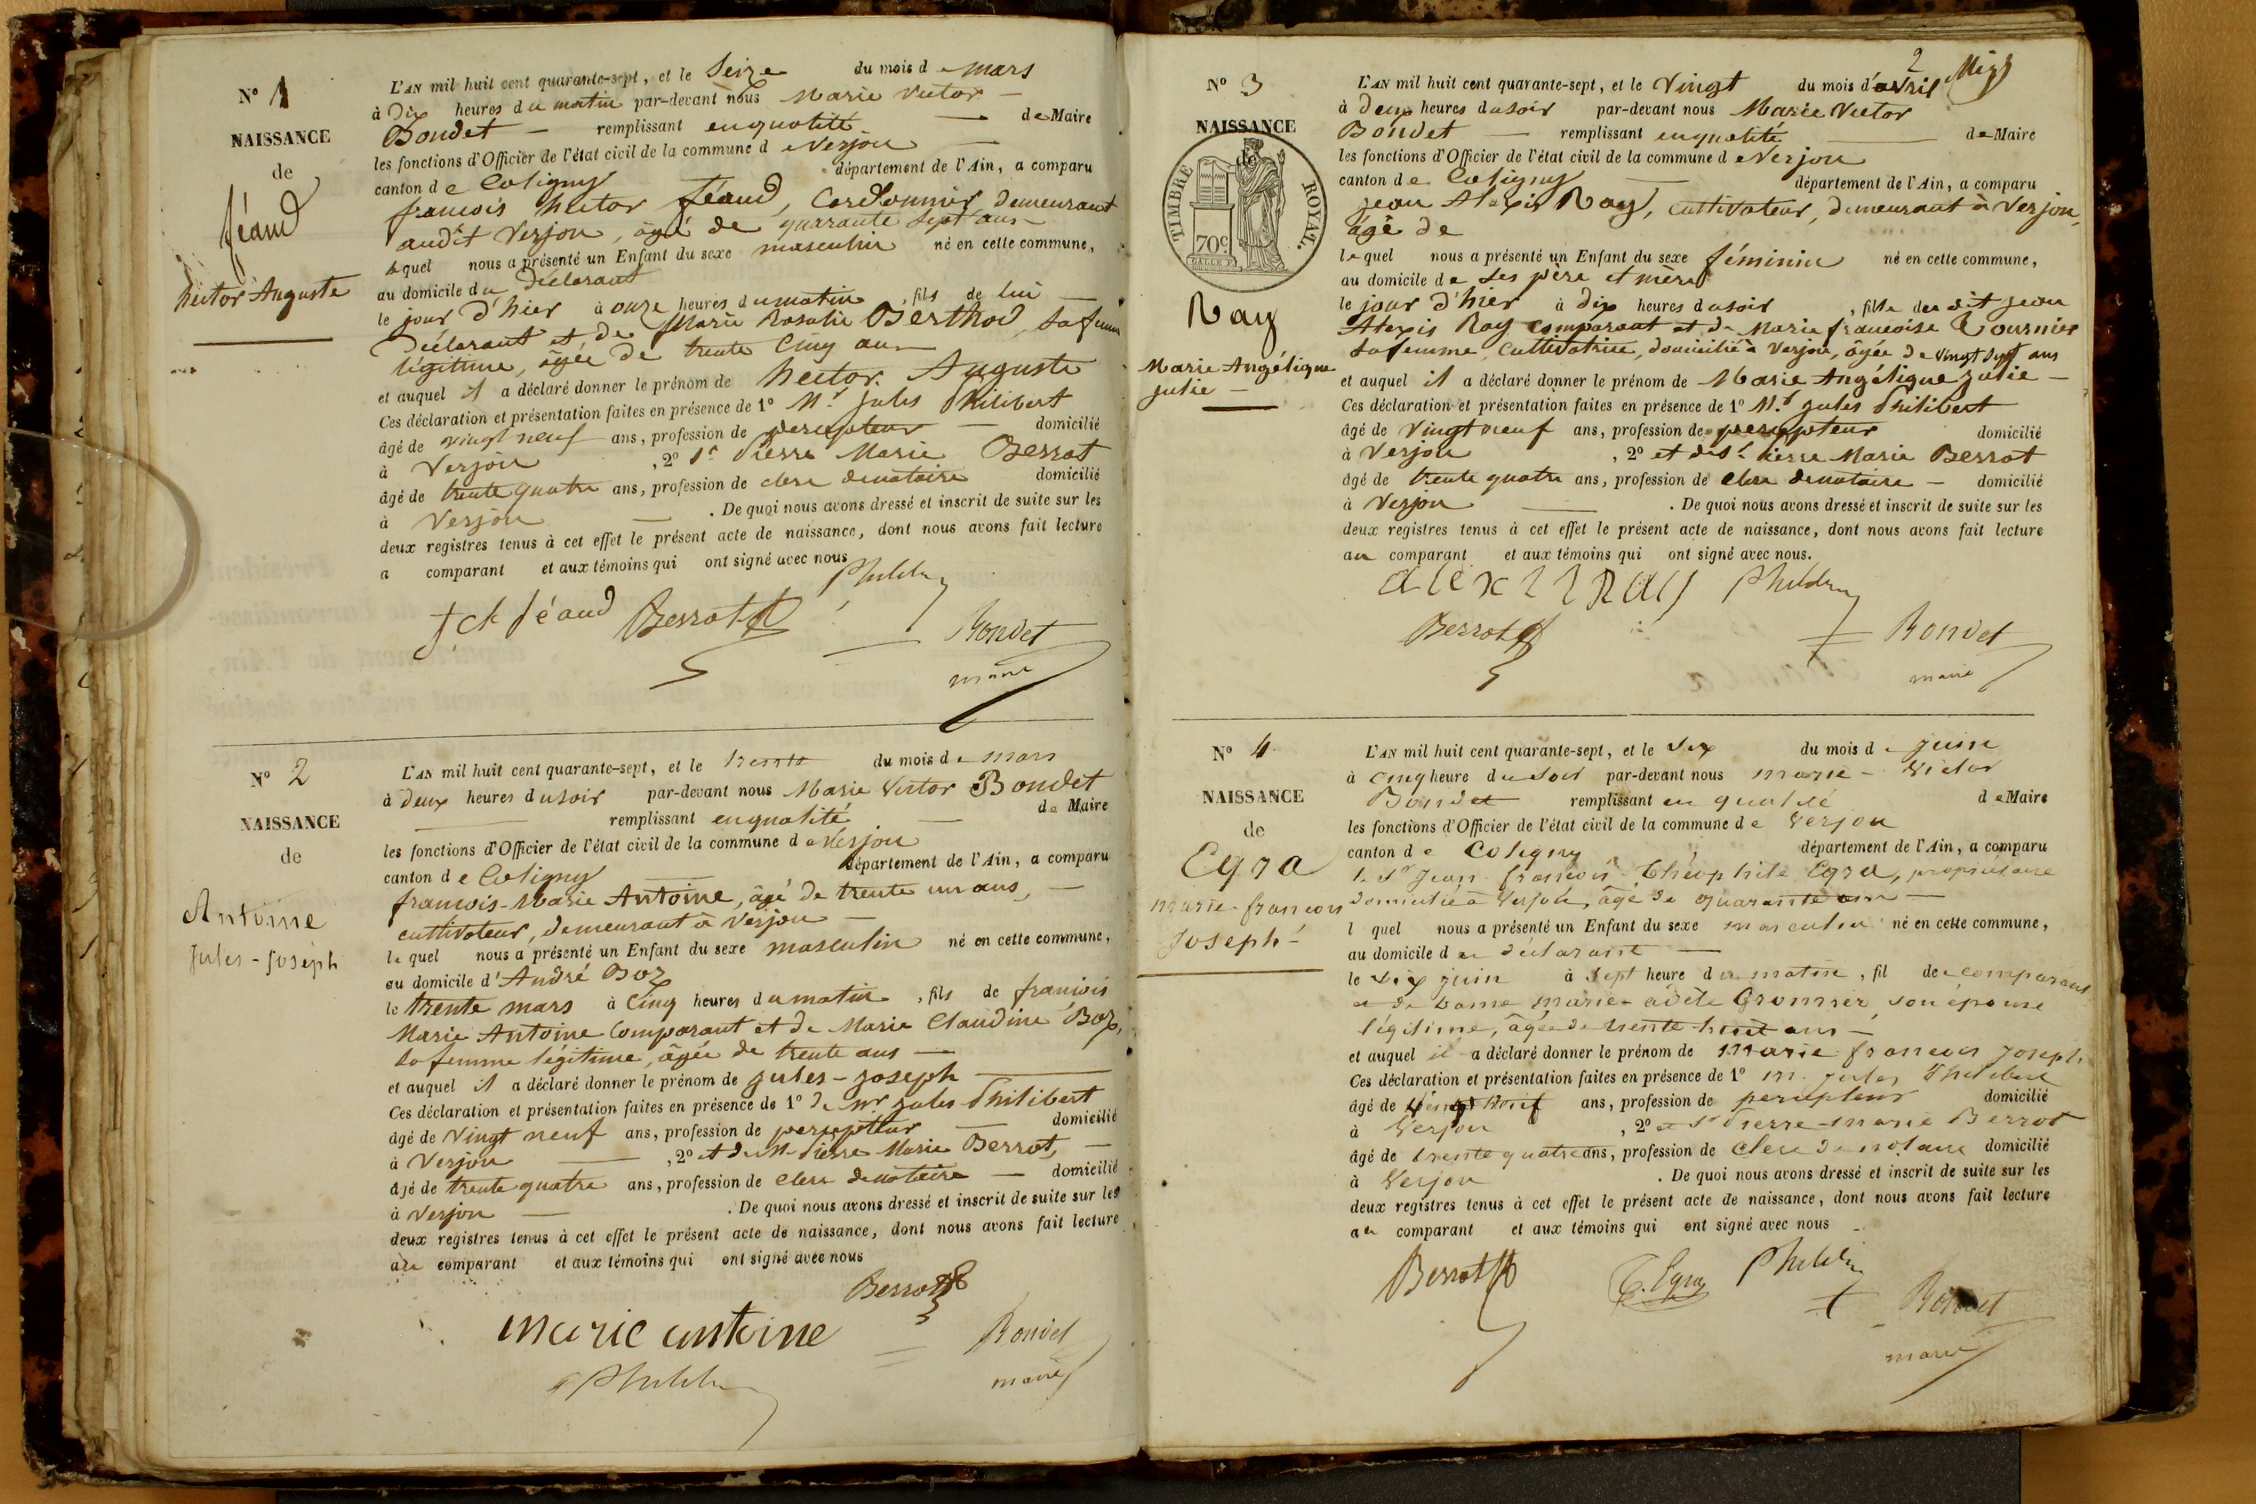 N° 1
NAISSANCE
de
féaud
hector Auguste
L'AN mil huit cent quarante-sept, et le Seize du mois de mars
à Dix heures du matin par-devant nous Marie Victor
Bondet remplissant en qualité de Maire
les fonctions d'Officier de l'état civil de la commune de Verjon
canton de Coligny département de l'Ain, a comparu
francois hector féaud, Cordonnier, demeurant
audit Verjon, âgé de quarante Sept ans
lequel nous a présenté un Enfant du sexe masculin né en cette commune,
au domicile du Déclarant
le jour d'hier à onze heures du matin, fils de lui
Déclarant et de Marie Rosalie Berthod, Sa femme
légitime, âgée de trente Cinq ans
et auquel il a déclaré donner le prénom de hector Auguste
Ces déclaration et présentation faites en présence de 1° Mr Jules Philibert
âgé de vingt neuf ans, profession de percepteur domicilié
à Verjon, 2° Sr Pierre Marie Berrot
âgé de trente quatre ans, profession de clerc de notaire domicilié
à Verjon. De quoi nous avons dressé et inscrit de suite sur les
deux registres tenus à cet effet le présent acte de naissance, dont nous avons fait lecture
a comparant et aux témoins qui ont signé avec nous
féaud Berrot Philibert
Bondet
maire
N° 2
NAISSANCE
de
Antoine
Jules-Joseph
L'AN mil huit cent quarante-sept, et le trente du mois de mars
à deux heures du soir par-devant nous Marie Victor Bondet
remplissant en qualité de Maire
les fonctions d'Officier de l'état civil de la commune de Verjon
canton de Coligny département de l'Ain, a comparu
francois-Marie Antoine, âgé de trente un ans,
cultivateur, demeurant à Verjon
lequel nous a présenté un Enfant du sexe masculin né en cette commune,
au domicile d'André Boz
le trente mars à Cinq heures du matin, fils de francois
Marie Antoine Comparant et de Marie Claudine Boz,
sa femme légitime, âgée de trente ans
et auquel il a déclaré donner le prénom de Jules-Joseph
Ces déclaration et présentation faites en présence de 1° de Mr Jules Philibert
âgé de Vingt neuf ans, profession de percepteur domicilié
à Verjon, 2° et de Pierre Marie Berrot,
âgé de trente quatre ans, profession de clerc de notaire domicilié
à Verjon. De quoi nous avons dressé et inscrit de suite sur les
deux registres tenus à cet effet le présent acte de naissance, dont nous avons fait lecture
au comparant et aux témoins qui ont signé avec nous
Berrot
marie antoine Bondet
Philibert maire
2
N° 3
NAISSANCE
de
TIMBRE ROYAL.
70c
Ray
Marie Angélique
Julie
L'AN mil huit cent quarante-sept, et le Vingt du mois d'avril
à deux heures du soir par-devant nous Marie Victor
Bondet remplissant en qualité de Maire
les fonctions d'Officier de l'état civil de la commune de Verjon
canton de Coligny département de l'Ain, a comparu
Jean Alexis Ray, cultivateur, demeurant à Verjon,
âgé de
lequel nous a présenté un Enfant du sexe féminin né en cette commune,
au domicile de Ses père et mère
le jour d'hier à dix heures du soir, fille du dit Jean
Alexis Ray comparant et de Marie francoise Tournier
sa femme, cultivatrice, domicilié à Verjon, âgée de vingt Sept ans
et auquel il a déclaré donner le prénom de Marie Angélique Julie
Ces déclaration et présentation faites en présence de 1° Mr Jules Philibert
âgé de Vingt neuf ans, profession de percepteur domicilié
à Verjon, 2° et de Sr Pierre Marie Berrot
âgé de trente quatre ans, profession de clerc de notaire domicilié
à Verjon. De quoi nous avons dressé et inscrit de suite sur les
deux registres tenus à cet effet le présent acte de naissance, dont nous avons fait lecture
au comparant et aux témoins qui ont signé avec nous.
Philibert
Berrot Bondet
maire
N° 4
NAISSANCE
de
Egra
marie-francois
Joseph
L'AN mil huit cent quarante-sept, et le dix du mois de juin
à cinq heure du soir par-devant nous marie-Victor
Bondet remplissant en qualité de Maire
les fonctions d'Officier de l'état civil de la commune de Verjon
canton de Coligny département de l'Ain, a comparu
le Sr Jean francois Théophile Egra, propriétaire
domicilié à Verjon, âgé de quarante ans
l quel nous a présenté un Enfant du sexe masculin né en cette commune,
au domicile du déclarant
le dix juin à sept heure du matin, fil de comparant
et de Dame marie-adèle Grommier son épouse
légitime, âgée de trente huit ans
et auquel il a déclaré donner le prénom de marie francois Joseph
Ces déclaration et présentation faites en présence de 1° m. Jules Philibert
âgé de vingt neuf ans, profession de percepteur domicilié
à Verjon, 2° et Sr Pierre-marie Berrot
âgé de trente quatre ans, profession de clerc de notaire domicilié
à Verjon. De quoi nous avons dressé et inscrit de suite sur les
deux registres tenus à cet effet le présent acte de naissance, dont nous avons fait lecture
au comparant et aux témoins qui ont signé avec nous
Berrot T. Egra Philibert
Bondet
maire